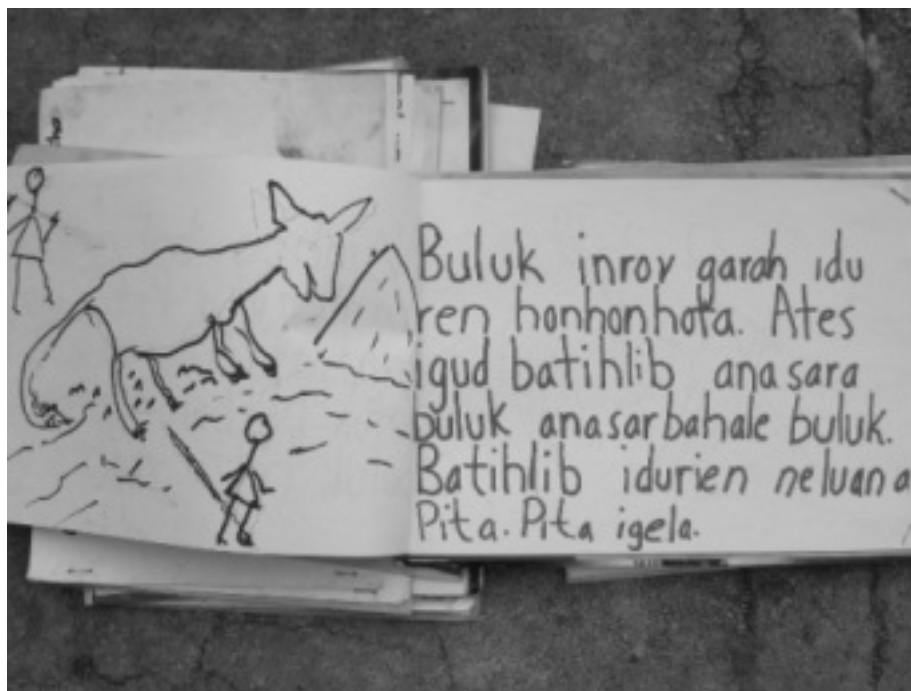 Buluk inrov garah idu
ren honhonhota. Ates
igud batihlib anasara
buluk anasarbahale buluk.
Batihlib idurien neluana
Pita. Pita igela.